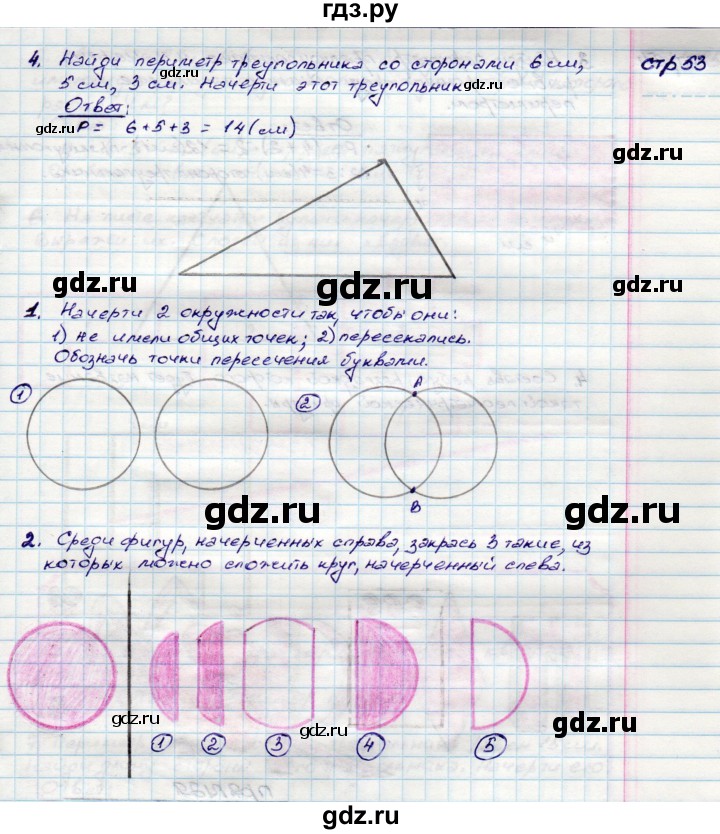 гдз.ру
4. Найди периметр треугольника со сторонами 6 см,
стр 53
5 см, 3 см. Начерти этот треугольник
gdz.ru
Ответ:
gdz.ru
P = 6+5+3 = 14 (см)
gdz.ru
gdz.ru
gdz.ru
gdz.ru
gdz.ru
1. Начерти 2 окружности так, чтобы они:
1) не имели общих точек; 2) пересекались.
Обозначь точки пересечения буквами.
gdz.ru
gdz.ru
1
2
A
B
gdz.ru
gdz.ru
2. Среди фигур, начерченных справа, закрась 3 такие, из
которых можно сложить круг, начерченный слева.
gdz.ru
gdz.ru
gdz.ru
gdz.ru
1 2 3 4 5
gdz.ru
gdz.ru
gdz.ru